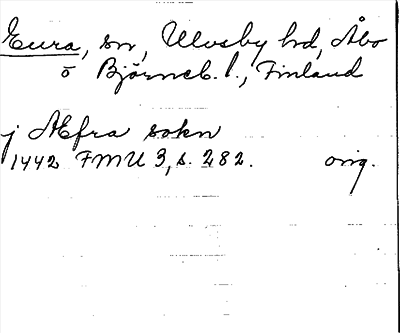 Eura, sn, Ulvsby hd, Åbo
o Björneb. l., Finland
j Æfra sokn
1442 FMU 3, s. 282. orig.